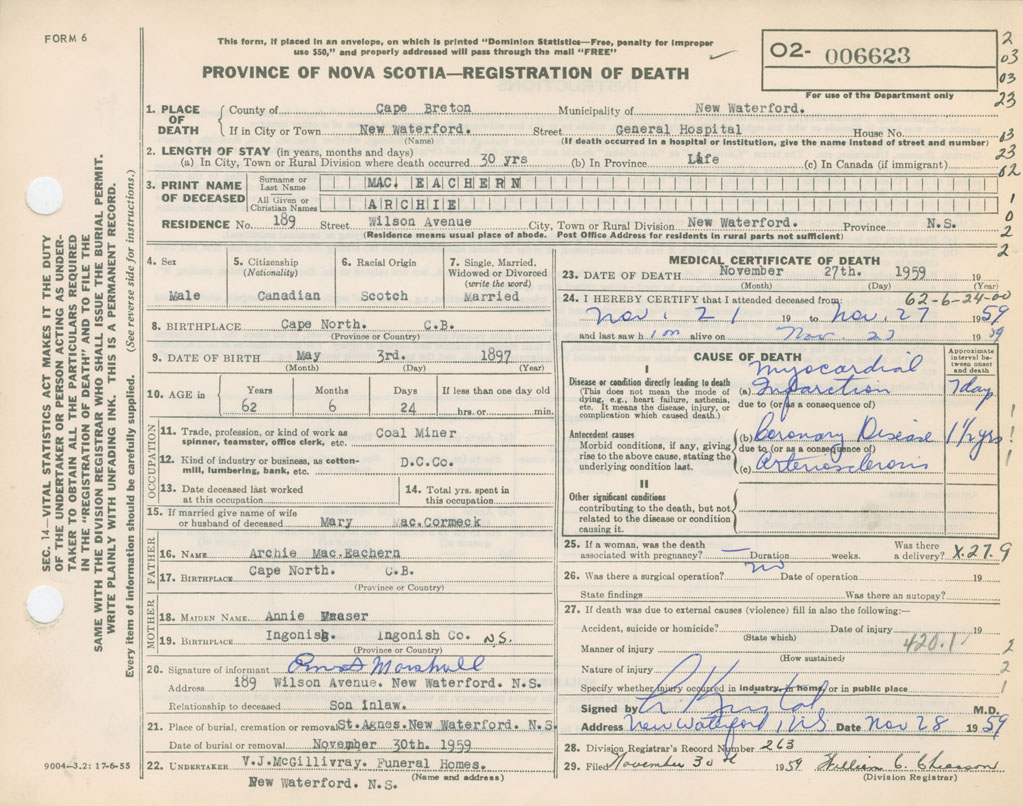 FORM 6
This form, if placed in an envelope, on which is printed "Dominion Statistics—Free, penalty for improper
use $50," and properly addressed will pass through the mail "FREE"
PROVINCE OF NOVA SCOTIA—REGISTRATION OF DEATH
O2- 006623
For use of the Department only
2
03
03
23
13
23
02
1
0
2
2
SEC. 14—VITAL STATISTICS ACT MAKES IT THE DUTY
OF THE UNDERTAKER OR PERSON ACTING AS UNDER-
TAKER TO OBTAIN ALL THE PARTICULARS REQUIRED
IN THE "REGISTRATION OF DEATH" AND TO FILE THE
SAME WITH THE DIVISION REGISTRAR WHO SHALL ISSUE THE BURIAL PERMIT.
WRITE PLAINLY WITH UNFADING INK. THIS IS A PERMANENT RECORD.
Every item of information should be carefully supplied. (See reverse side for instructions.)
1. PLACE OF DEATH
County of Cape Breton Municipality of New Waterford.
If in City or Town New Waterford. Street General Hospital House No.
(Name) (If death occurred in a hospital or institution, give the name instead of street and number)
2. LENGTH OF STAY (in years, months and days)
(a) In City, Town or Rural Division where death occurred 30 yrs (b) In Province Life (c) In Canada (if immigrant)
3. PRINT NAME OF DECEASED
Surname or Last Name MAC. EACHERN
All Given or Christian Names ARCHIE
RESIDENCE No. 189 Street Wilson Avenue City, Town or Rural Division New Waterford. Province N.S.
(Residence means usual place of abode. Post Office Address for residents in rural parts not sufficient)
4. Sex
Male
5. Citizenship (Nationality)
Canadian
6. Racial Origin
Scotch
7. Single, Married, Widowed or Divorced (write the word)
Married
8. BIRTHPLACE Cape North. C.B.
(Province or Country)
9. DATE OF BIRTH May 3rd. 1897
(Month) (Day) (Year)
10. AGE in Years Months Days If less than one day old
62 6 24 hrs. or min.
OCCUPATION
11. Trade, profession, or kind of work as
spinner, teamster, office clerk, etc. Coal Miner
12. Kind of industry or business, as cotton-
mill, lumbering, bank, etc. D.C.Co.
13. Date deceased last worked
at this occupation
14. Total yrs. spent in
this occupation
15. If married give name of wife
or husband of deceased Mary Mac.Cormeck
FATHER
16. NAME Archie Mac.Eachern
17. BIRTHPLACE Cape North. C.B.
(Province or Country)
MOTHER
18. MAIDEN NAME Annie
19. BIRTHPLACE Ingonish. Ingonish Co. N.S.
(Province or Country)
20. Signature of informant Marshall
Address 189 Wilson Avenue. New Waterford. N.S.
Relationship to deceased Son inlaw.
21. Place of burial, cremation or removal St.Agnes.New Waterford. N.S.
Date of burial or removal November 30th. 1959
22. UNDERTAKER V.J.McGillivray. Funeral Homes.
(Name and address)
New Waterford. N.S.
9004—3.2: 17-6-55
MEDICAL CERTIFICATE OF DEATH
23. DATE OF DEATH November 27th. 1959 19
(Month) (Day) (Year)
24. I HEREBY CERTIFY that I attended deceased from: 62-6-24-00
Nov. 21 19 to Nov. 27 1959
and last saw h im alive on Nov. 27 1959
CAUSE OF DEATH
Approximate interval between onset and death
I
Disease or condition directly leading to death
(This does not mean the mode of
dying, e.g., heart failure, asthenia,
etc. It means the disease, injury, or
complication which caused death.)
Myocardial
(a) Infarction 7 day
due to (or as a consequence of)
Antecedent causes
Morbid conditions, if any, giving
rise to the above cause, stating the
underlying condition last.
(b) Coronary Disease 1½ yrs
due to (or as a consequence of)
(c) Arteriosclerosis
II
Other significant conditions
contributing to the death, but not
related to the disease or condition
causing it.
25. If a woman, was the death Was there
associated with pregnancy? — Duration weeks. a delivery? X.27.9
26. Was there a surgical operation? no Date of operation 19
State findings Was there an autopsy?
27. If death was due to external causes (violence) fill in also the following:—
Accident, suicide or homicide? Date of injury 19
(State which)
Manner of injury 420.1 2
(How sustained)
Nature of injury 2
Specify whether injury occurred in industry, in home, or in public place 1
Signed by M.D.
Address New Waterford, N.S. Date Nov 28 1959
28. Division Registrar's Record Number 263
29. Filed November 30th 1959 William C. Chiasson
(Division Registrar)